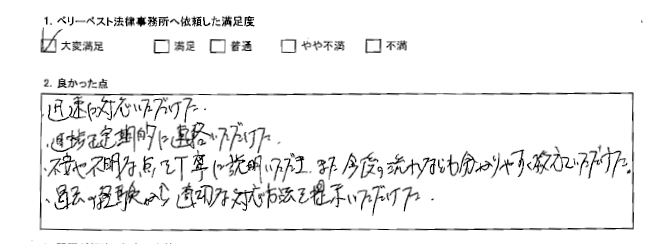 1. ベリーベスト法律事務所へ依頼した満足度
大変満足 満足 普通 やや不満 不満
2. 良かった点
・迅速に対応いただけた.
・進捗を定期的に連絡いただけた.
・不安や不明な点を丁寧に説明いただき、また今後の流れなども分かりやすく教えていただけた。
・過去の経験から適切な対応方法を提示いただけた.